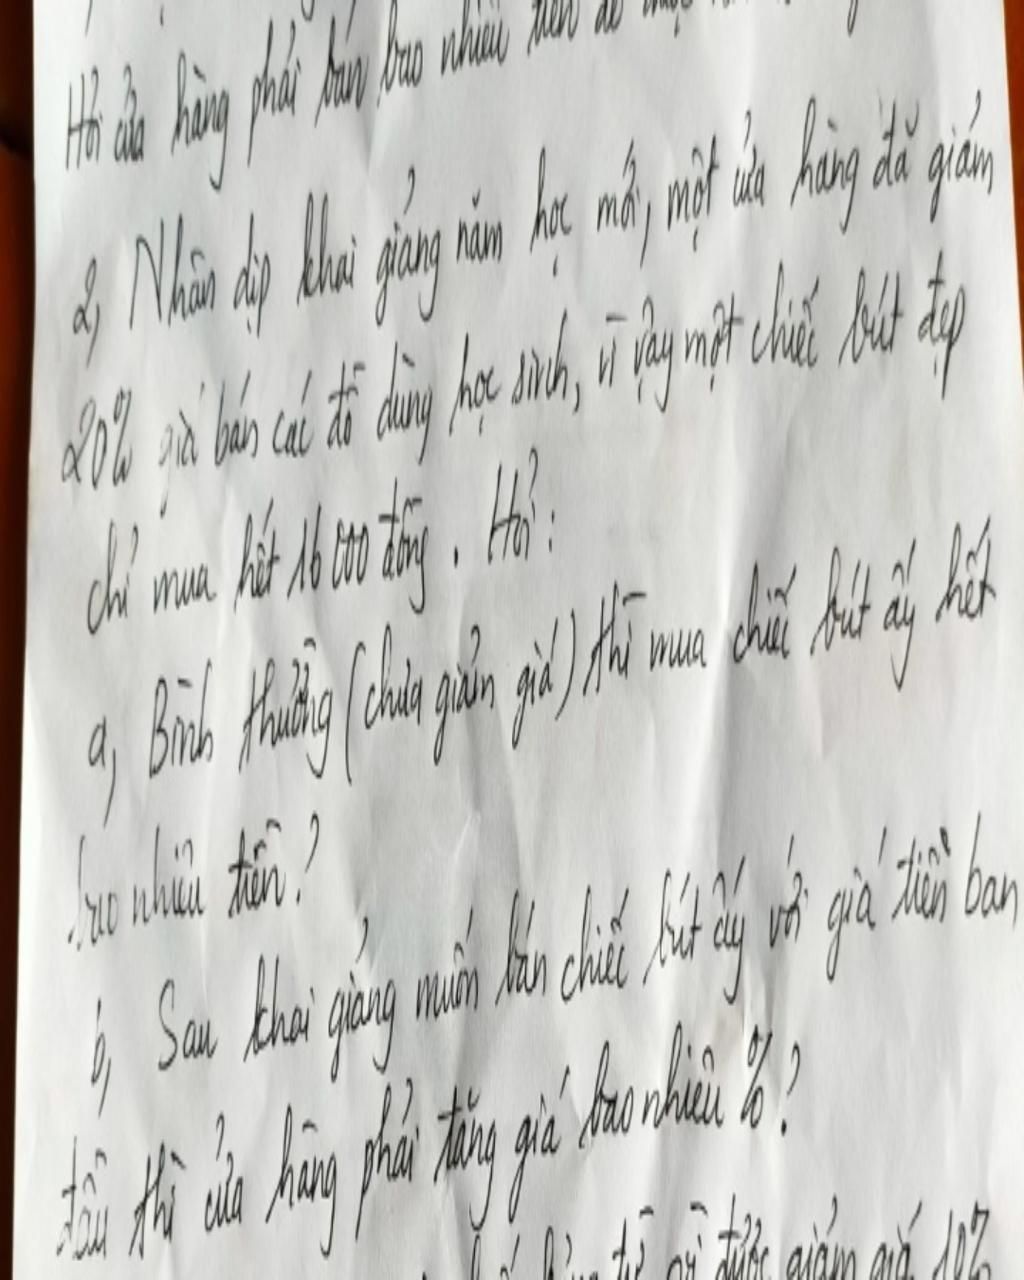 Hỏi cửa hàng phải bán bao nhiêu tiền để
2, Nhân dịp khai giảng năm học mới, một cửa hàng đã giảm
20% giá bán các đồ dùng học sinh, vì vậy một chiếc bút đẹp
chỉ mua hết 16 000 đồng. Hỏi:
a, Bình thường (chưa giảm giá) thì mua chiếc bút ấy hết
bao nhiêu tiền?
b, Sau khai giảng muốn bán chiếc bút ấy với giá tiền ban
đầu thì cửa hàng phải tăng giá bao nhiêu %?
được giảm giá 10%